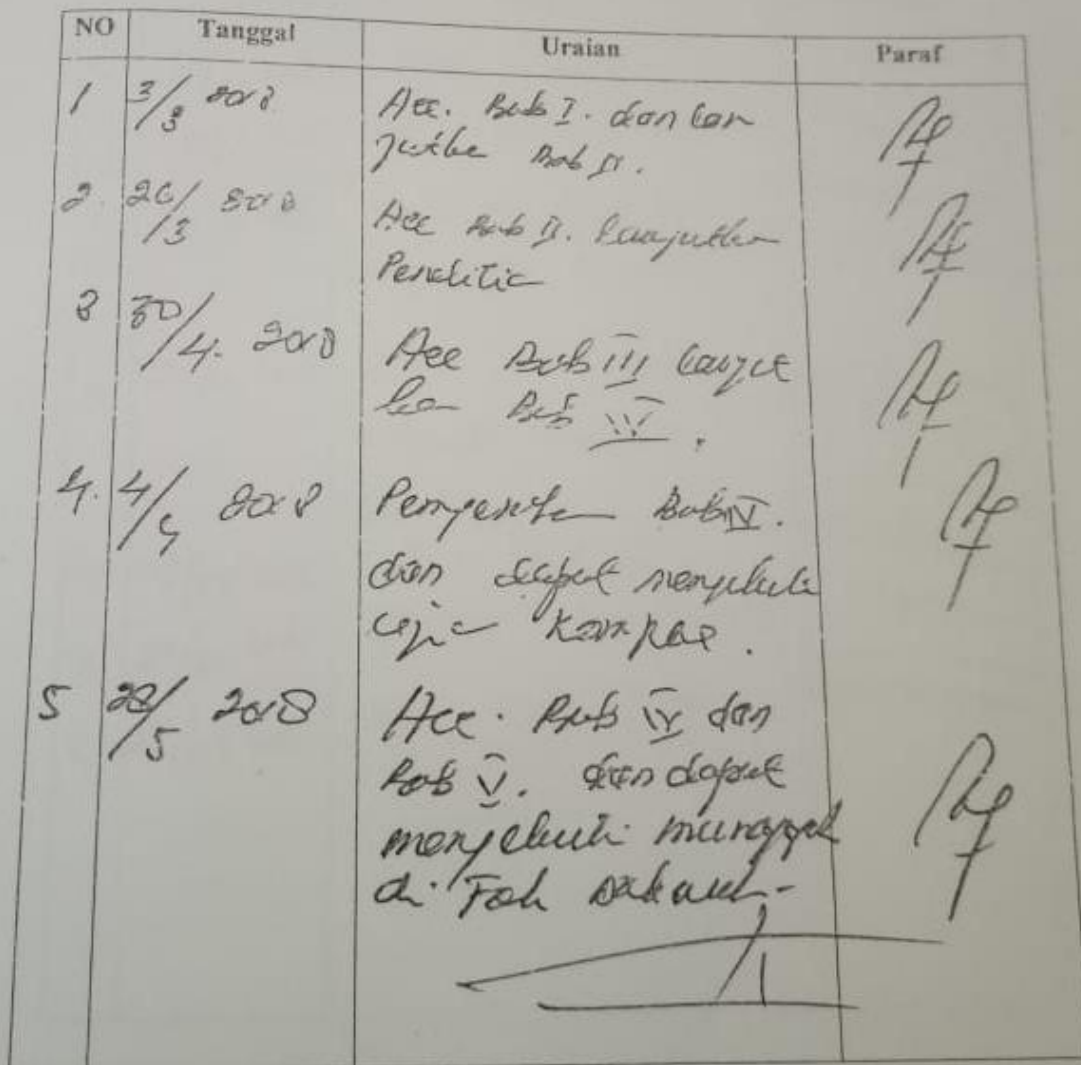 NO Tanggal Uraian Paraf
1 3/3 2018 Acc. Bab I. dan lan
jutkan Bab II.
2. 26/3 2018 Acc Bab II. Lanjutkan
Penelitian
3 30/4. 2018 Acc Bab III lanjut
kan Bab IV.
4. 4/5 2018 Bab IV.
dan dapat mengikuti
ujian Kompre.
5 28/5 2018 Acc. Bab IV dan
Bab V. dan dapat
mengikuti munaqosah
di Fak Dakwah